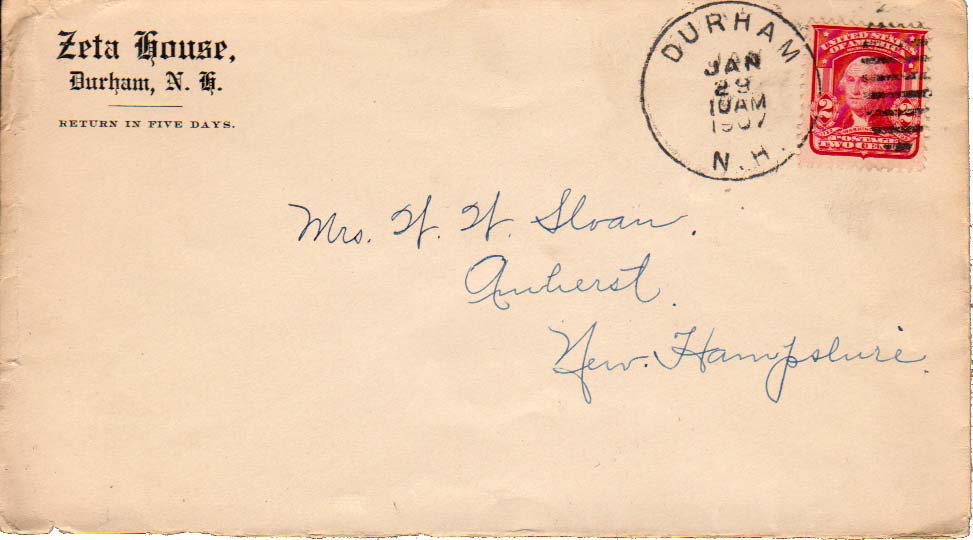 Zeta House,
Durham, N. H.
RETURN IN FIVE DAYS.
DURHAM
JAN
29
10AM
1907
N.H.
UNITED STATES
OF AMERICA
2 2
POSTAGE
TWO CENTS
Mrs. W. W. Sloan.
Amherst.
New. Hampshire.